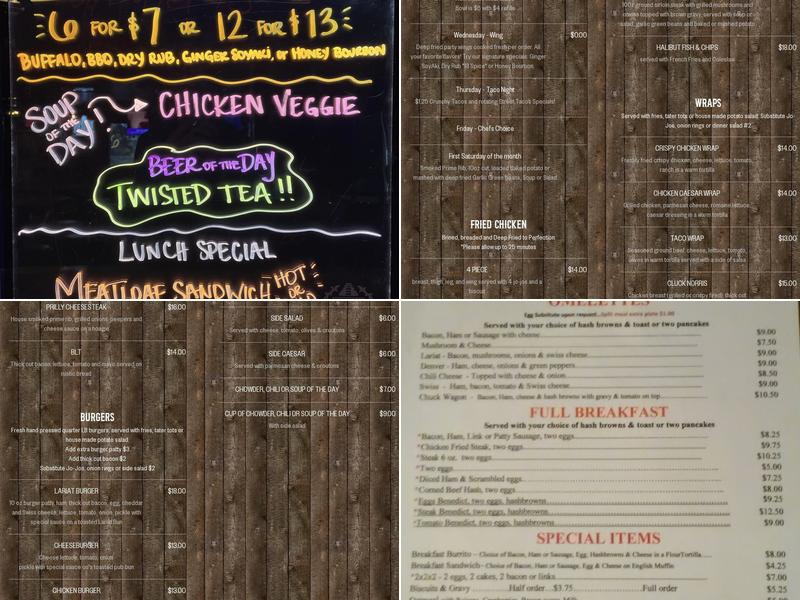 6 FOR $7 OR 12 FOR $13
BUFFALO, BBQ, DRY RUB, GINGER SOYAKI, OR HONEY BOURBON
SOUP OF THE DAY! CHICKEN VEGGIE
BEER OF THE DAY
TWISTED TEA!!
LUNCH SPECIAL
MEATLOAF SANDWICH, HOT OR
Soup is $5 with $4 refills
Wednesday - Wing $0.00
Deep fried party wings cooked fresh per order. All
your favorite flavors! Try our signature specials: Ginger
SoyAki, Dry Rub "lil Spice" or Honey Bourbon.
Thursday - Taco Night
$1.20 Crunchy Tacos and rotating Street Tacos Specials!
Friday - Chefs Choice
First Saturday of the month
Smoked Prime Rib, 10oz cut, loaded baked potato or
mashed with deep fried Garlic Green beans, Soup or Salad
FRIED CHICKEN
Brined, breaded and Deep Fried to Perfection
*Please allow up to 25 minutes
4 PIECE $14.00
breast, thigh, leg, and wing served with 4 jo-jos and a
biscuit
100% ground sirloin steak with grilled mushrooms and
onions topped with brown gravy, served with soup or
salad, garlic green beans and baked or mashed potato
HALIBUT FISH & CHIPS
served with French Fries and Coleslaw
WRAPS
Served with fries, tater tots or house made potato salad. Substitute Jo-
Jos, onion rings or dinner salad $2
CRISPY CHICKEN WRAP $14.00
Freshly fried crispy chicken, cheese, lettuce, tomato,
ranch in a warm tortilla
CHICKEN CAESAR WRAP $14.00
Grilled chicken, parmesan cheese, romaine lettuce,
caesar dressing in a warm tortilla
TACO WRAP $13.00
Seasoned ground beef, cheese, lettuce, tomato,
olives in warm tortilla served with a side of salsa
CLUCK NORRIS $15.00
Chicken breast (grilled or crispy fried), thick cut
PRILLY CHEESESTEAK $16.00
House smoked prime rib, grilled onions, peppers and
cheese sauce on a hoagie
BLT $14.00
Thick cut bacon, lettuce, tomato and mayo served on
rustic bread
BURGERS
Fresh hand pressed quarter LB burgers, served with fries, tater tots or
house made potato salad
Add extra burger patty $3
Add thick cut bacon $2
Substitute Jo-Jos, onion rings or side salad $2
LARIAT BURGER $18.00
10 oz burger patty, ham, thick cut bacon, egg, cheddar
and Swiss cheese, lettuce, tomato, onion, pickle with
special sauce on a toasted Lariat Bun
CHEESEBURGER $13.00
Cheese lettuce, tomato, onion
pickle with special sauce on's toasted pub bun
CHICKEN BURGER $13.00
SIDE SALAD $6.00
Served with cheese, tomato, olives & croutons
SIDE CAESAR $6.00
Served with parmesan cheese & croutons
CHOWDER, CHILI OR SOUP OF THE DAY $7.00
CUP OF CHOWDER, CHILI OR SOUP OF THE DAY $9.00
With side salad
OMELETTES
Egg Substitute upon request...Split meal extra plate $1.00
Served with your choice of hash browns & toast or two pancakes
Bacon, Ham or Sausage with cheese $9.00
Mushroom & Cheese $7.50
Lariat - Bacon, mushrooms, onions & swiss cheese $9.00
Denver - Ham, cheese, onions & green peppers $9.00
Chili Cheese - Topped with cheese & onion $8.50
Swiss - Ham, bacon, tomato & Swiss cheese $9.00
Chuck Wagon - Bacon, Ham, cheese & hash browns with gravy & tomato on top $10.50
FULL BREAKFAST
Served with your choice of hash browns & toast or two pancakes
*Bacon, Ham, Link or Patty Sausage, two eggs $8.25
*Chicken Fried Steak, two eggs $9.75
*Steak 6 oz. two eggs $10.25
*Two eggs $5.00
*Diced Ham & Scrambled eggs $7.25
*Corned Beef Hash, two eggs $8.00
*Eggs Benedict, two eggs, hashbrowns $9.25
*Steak Benedict, two eggs, hashbrowns $12.50
*Tomato Benedict, two eggs, hashbrowns $9.00
SPECIAL ITEMS
Breakfast Burrito - Choice of Bacon, Ham or Sausage, Egg, Hashbrowns & Cheese in a Flour Tortilla $8.00
Breakfast Sandwich - Choice of Bacon, Ham or Sausage, Egg & Cheese on English Muffin $4.25
*2x2x2 - 2 eggs, 2 cakes, 2 bacon or links $7.00
Biscuits & Gravy Half order $3.75 Full order $5.25